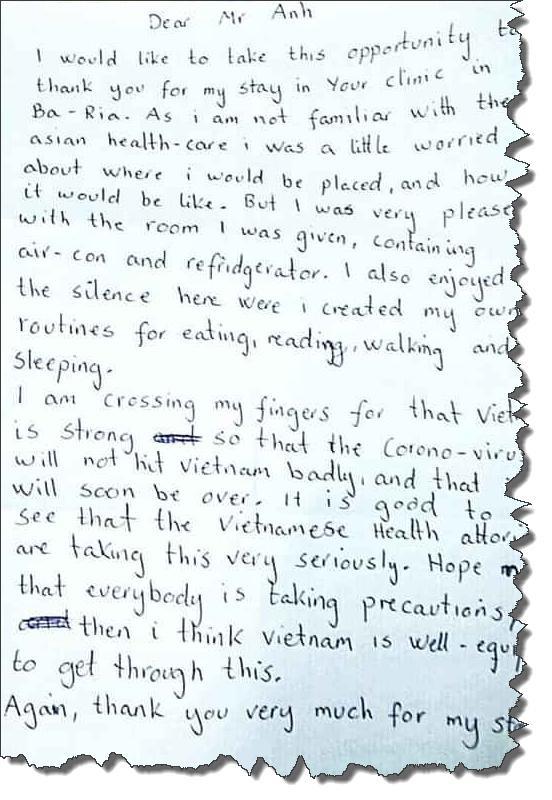 Dear Mr Anh
I would like to take this opportunity to
thank you for my stay in Your clinic in
Ba-Ria. As i am not familiar with the
asian health-care i was a little worried
about where i would be placed, and how
it would be like. But I was very please
with the room I was given, containing
air-con and refridgerator. I also enjoyed
the silence here were i created my own
routines for eating, reading, walking and
sleeping.
I am crossing my fingers for that Viet
is strong so that the Corono-viru
will not hit Vietnam badly, and that
will soon be over. It is good to
see that the Vietnamese Health attor
are taking this very seriously. Hope
that everybody is taking precautions,
then i think Vietnam is well-equi
to get through this.
Again, thank you very much for my st